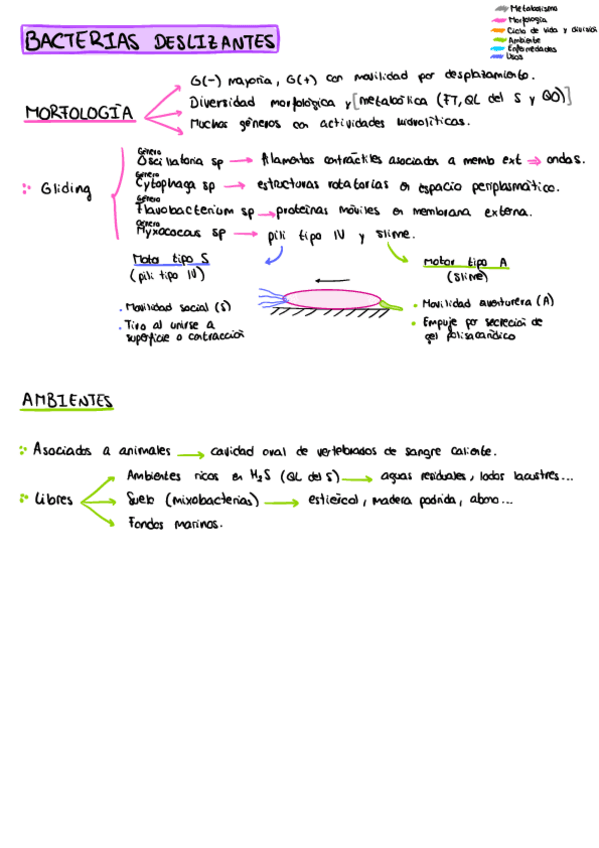 Metabolismo
Morfología
Ciclo de vida y división
Ambiente
Enfermedades
Usos
BACTERIAS DESLIZANTES
G(-) mayoría, G(+) con movilidad por desplazamiento.
MORFOLOGÍA
Diversidad morfológica y [metabólica (FT, QL del S y QO)]
Muchos géneros con actividades hidrolíticas.
:· Gliding
Género
Oscillatoria sp → filamentos contráctiles asociados a memb ext ⇒ ondas.
Género
Cytophaga sp → estructuras rotatorias en espacio periplasmático.
Género
Flavobacterium sp → proteínas móviles en membrana externa.
Género
Myxococcus sp → pili tipo IV y slime.
Motor tipo S
(pili tipo IV)
· Movilidad social (S)
· Tira al unirse a
superficie o contracción
Motor tipo A
(slime)
· Movilidad aventurera (A)
· Empuje por secreción de
gel polisacarídico
AMBIENTES
:· Asociados a animales → cavidad oral de vertebrados de sangre caliente.
:· Libres
Ambientes ricos en H₂S (QL del S) → aguas residuales, lodos lacustres...
Suelo (mixobacterias) → estiércol, madera podrida, abono...
Fondos marinos.